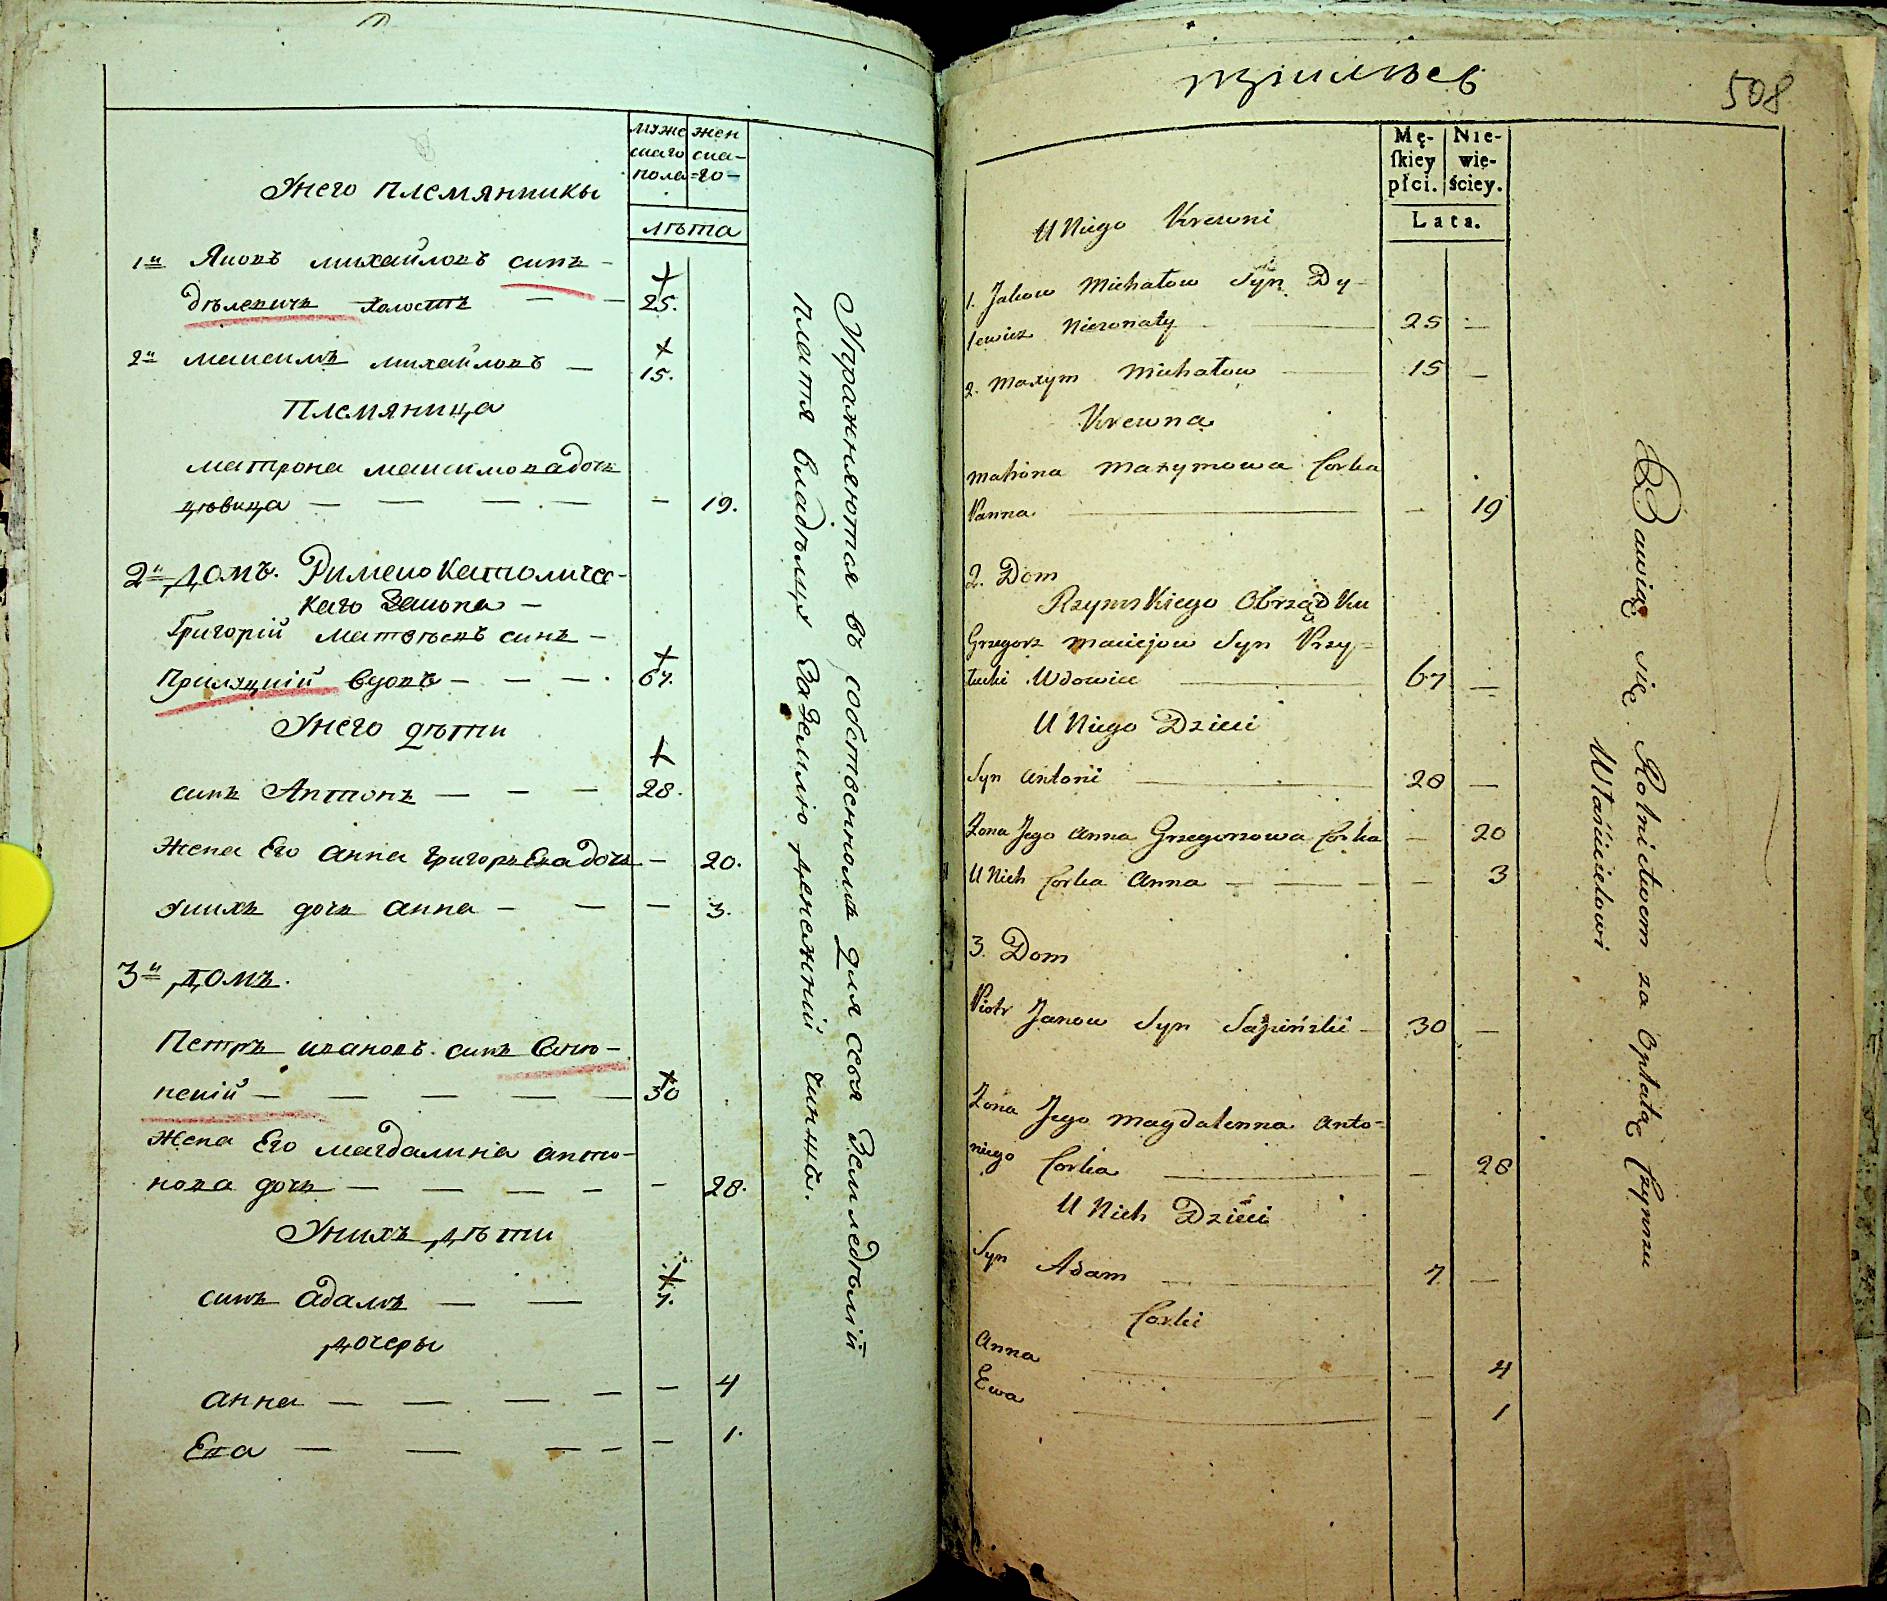 муже жен
скаго ска-
пола =го-
лѣта
Унего племянникы
1й Яковъ михайловъ синъ -
дѣлевичъ холостъ — — 25.
2й максимъ михайловъ — 15.
Племяница
матрона максимова дочь
цѣвица — — — — — 19.
2й домъ. Римско Католичес-
каго Закона —
Григорій матвѣевъ синъ -
Прилуцкій вуовъ — — — 67.
Унего дѣти
синъ Антонъ — — — 28.
Жена Его анна Григорьева дочь — 20.
унихъ дочь анна — — — 3.
3й домъ.
Петръ ивановъ синъ
— — — — — 30
Жена Его магдалина анто-
нова дочь — — — — — 28.
Унихъ дѣти
синъ адамъ — — 7.
дочеры
анна — — — — — 4
Ева — — — — — 1.
Упражняются въ собственномъ для себя Земледѣлій
платя владѣлцу За Землю денежній чиншъ.
508
Mę- Nie-
skiey wie-
płci. ściey.
Lata.
U Niego Krewni
1. Jakow Michałow Syn Dy-
lewicz Niezonaty — 25 —
2. Maxym Michałow — 15 —
Krewna
Matrona Maxymowa Corka
Panna — — 19
2. Dom
Rzymskiego Obrządku
Grzegorz Maciejow Syn Przy=
łucki Wdowiec — 67 —
U Niego Dzieci
Syn Antoni — 28 —
Zona Jego Anna Grzegorzowa Corka — 20
U Nich Corka Anna — — — — 3
3. Dom
Piotr Janow Syn — 30 —
Zona Jego Magdalenna Anto=
niego Corka — — 28
U Nich Dzieci
Syn Adam — 7 —
Corki
Anna — — 4
Ewa — — 1
Bawią się Rolnictwem za Opłatą Czynszu
Właścicielowi